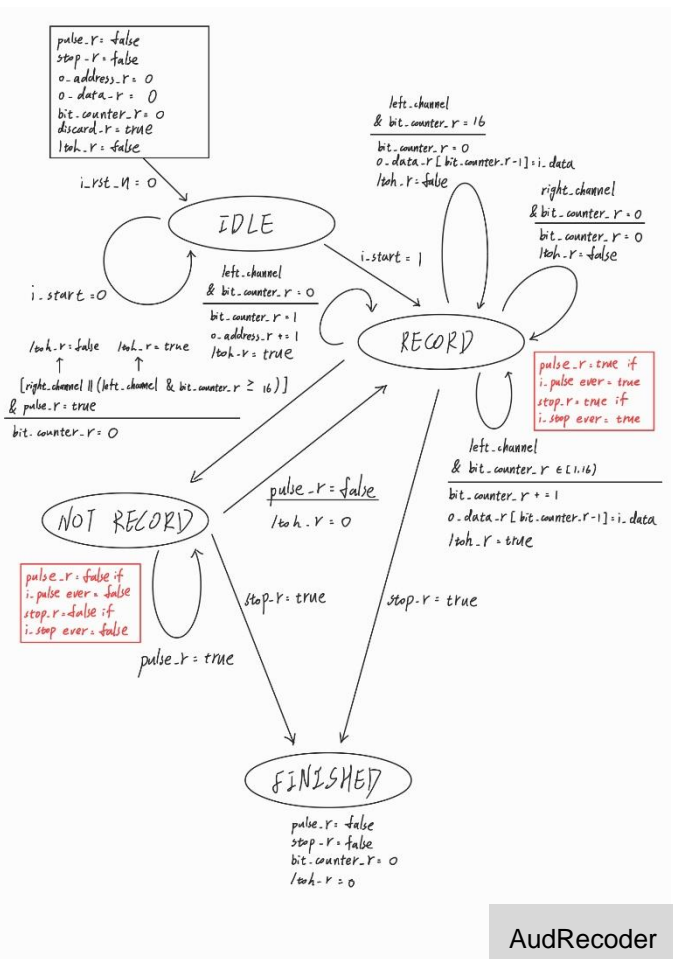 pulse_r = false
stop_r = false
o_address_r = 0
o_data_r = 0
bit_counter_r = 0
discard_r = true
ltoh_r = false
i_rst_n = 0
IDLE
i_start = 0
i_start = 1
left_channel
& bit_counter_r = 16
bit_counter_r = 0
o_data_r [bit_counter_r-1] = i_data
ltoh_r = false
right_channel
& bit_counter_r = 0
bit_counter_r = 0
ltoh_r = false
left_channel
& bit_counter_r = 0
bit_counter_r = 1
o_address_r += 1
ltoh_r = true
RECORD
pulse_r = true if
i_pulse ever = true
stop_r = true if
i_stop ever = true
ltoh_r = false ltoh_r = true
[right_channel || (left_channel & bit_counter_r ≥ 16)]
& pulse_r = true
bit_counter_r = 0
left_channel
& bit_counter_r ∈ [1,16)
bit_counter_r += 1
o_data_r [bit_counter_r-1] = i_data
ltoh_r = true
NOT RECORD
pulse_r = false
ltoh_r = 0
pulse_r = false if
i_pulse ever = false
stop_r = false if
i_stop ever = false
pulse_r = true
stop_r = true
stop_r = true
FINISHED
pulse_r = false
stop_r = false
bit_counter_r = 0
ltoh_r = 0
AudRecoder